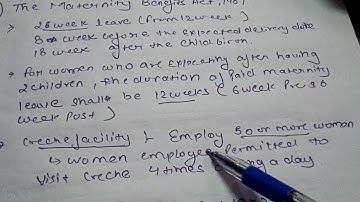 The Maternity Benefits Act, 1961
26 week leave (from 12 week)
8 week before the expected delivery date
18 week after the child birth.
for women who are expecting after having
2 children, the duration of Paid maternity
leave shall be 12 weeks (6 week Pre & 6
week Post)
Creche facility Employ 50 or more woman
↳ women employee permitted to
visit creche 4 times a day